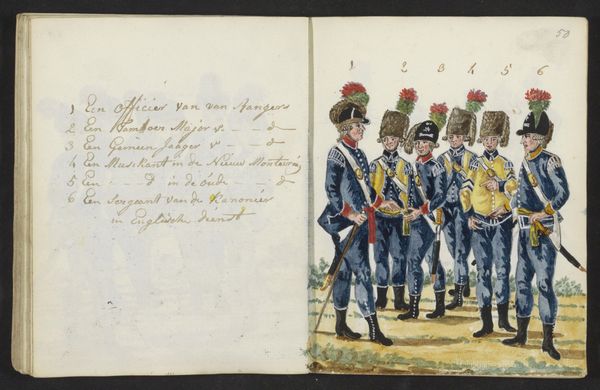 1 Een Officier van van Aangers
2 Een Tamboer Major v. - - d
3 Een Gemeen Jaager v - - d
4 Een Musikant in de Nieuw Monteurig
5 Een - - d in de oude - - d
6 Een Sergeant van de Kanonier
in Englische dienst
50
1 2 3 4 5 6